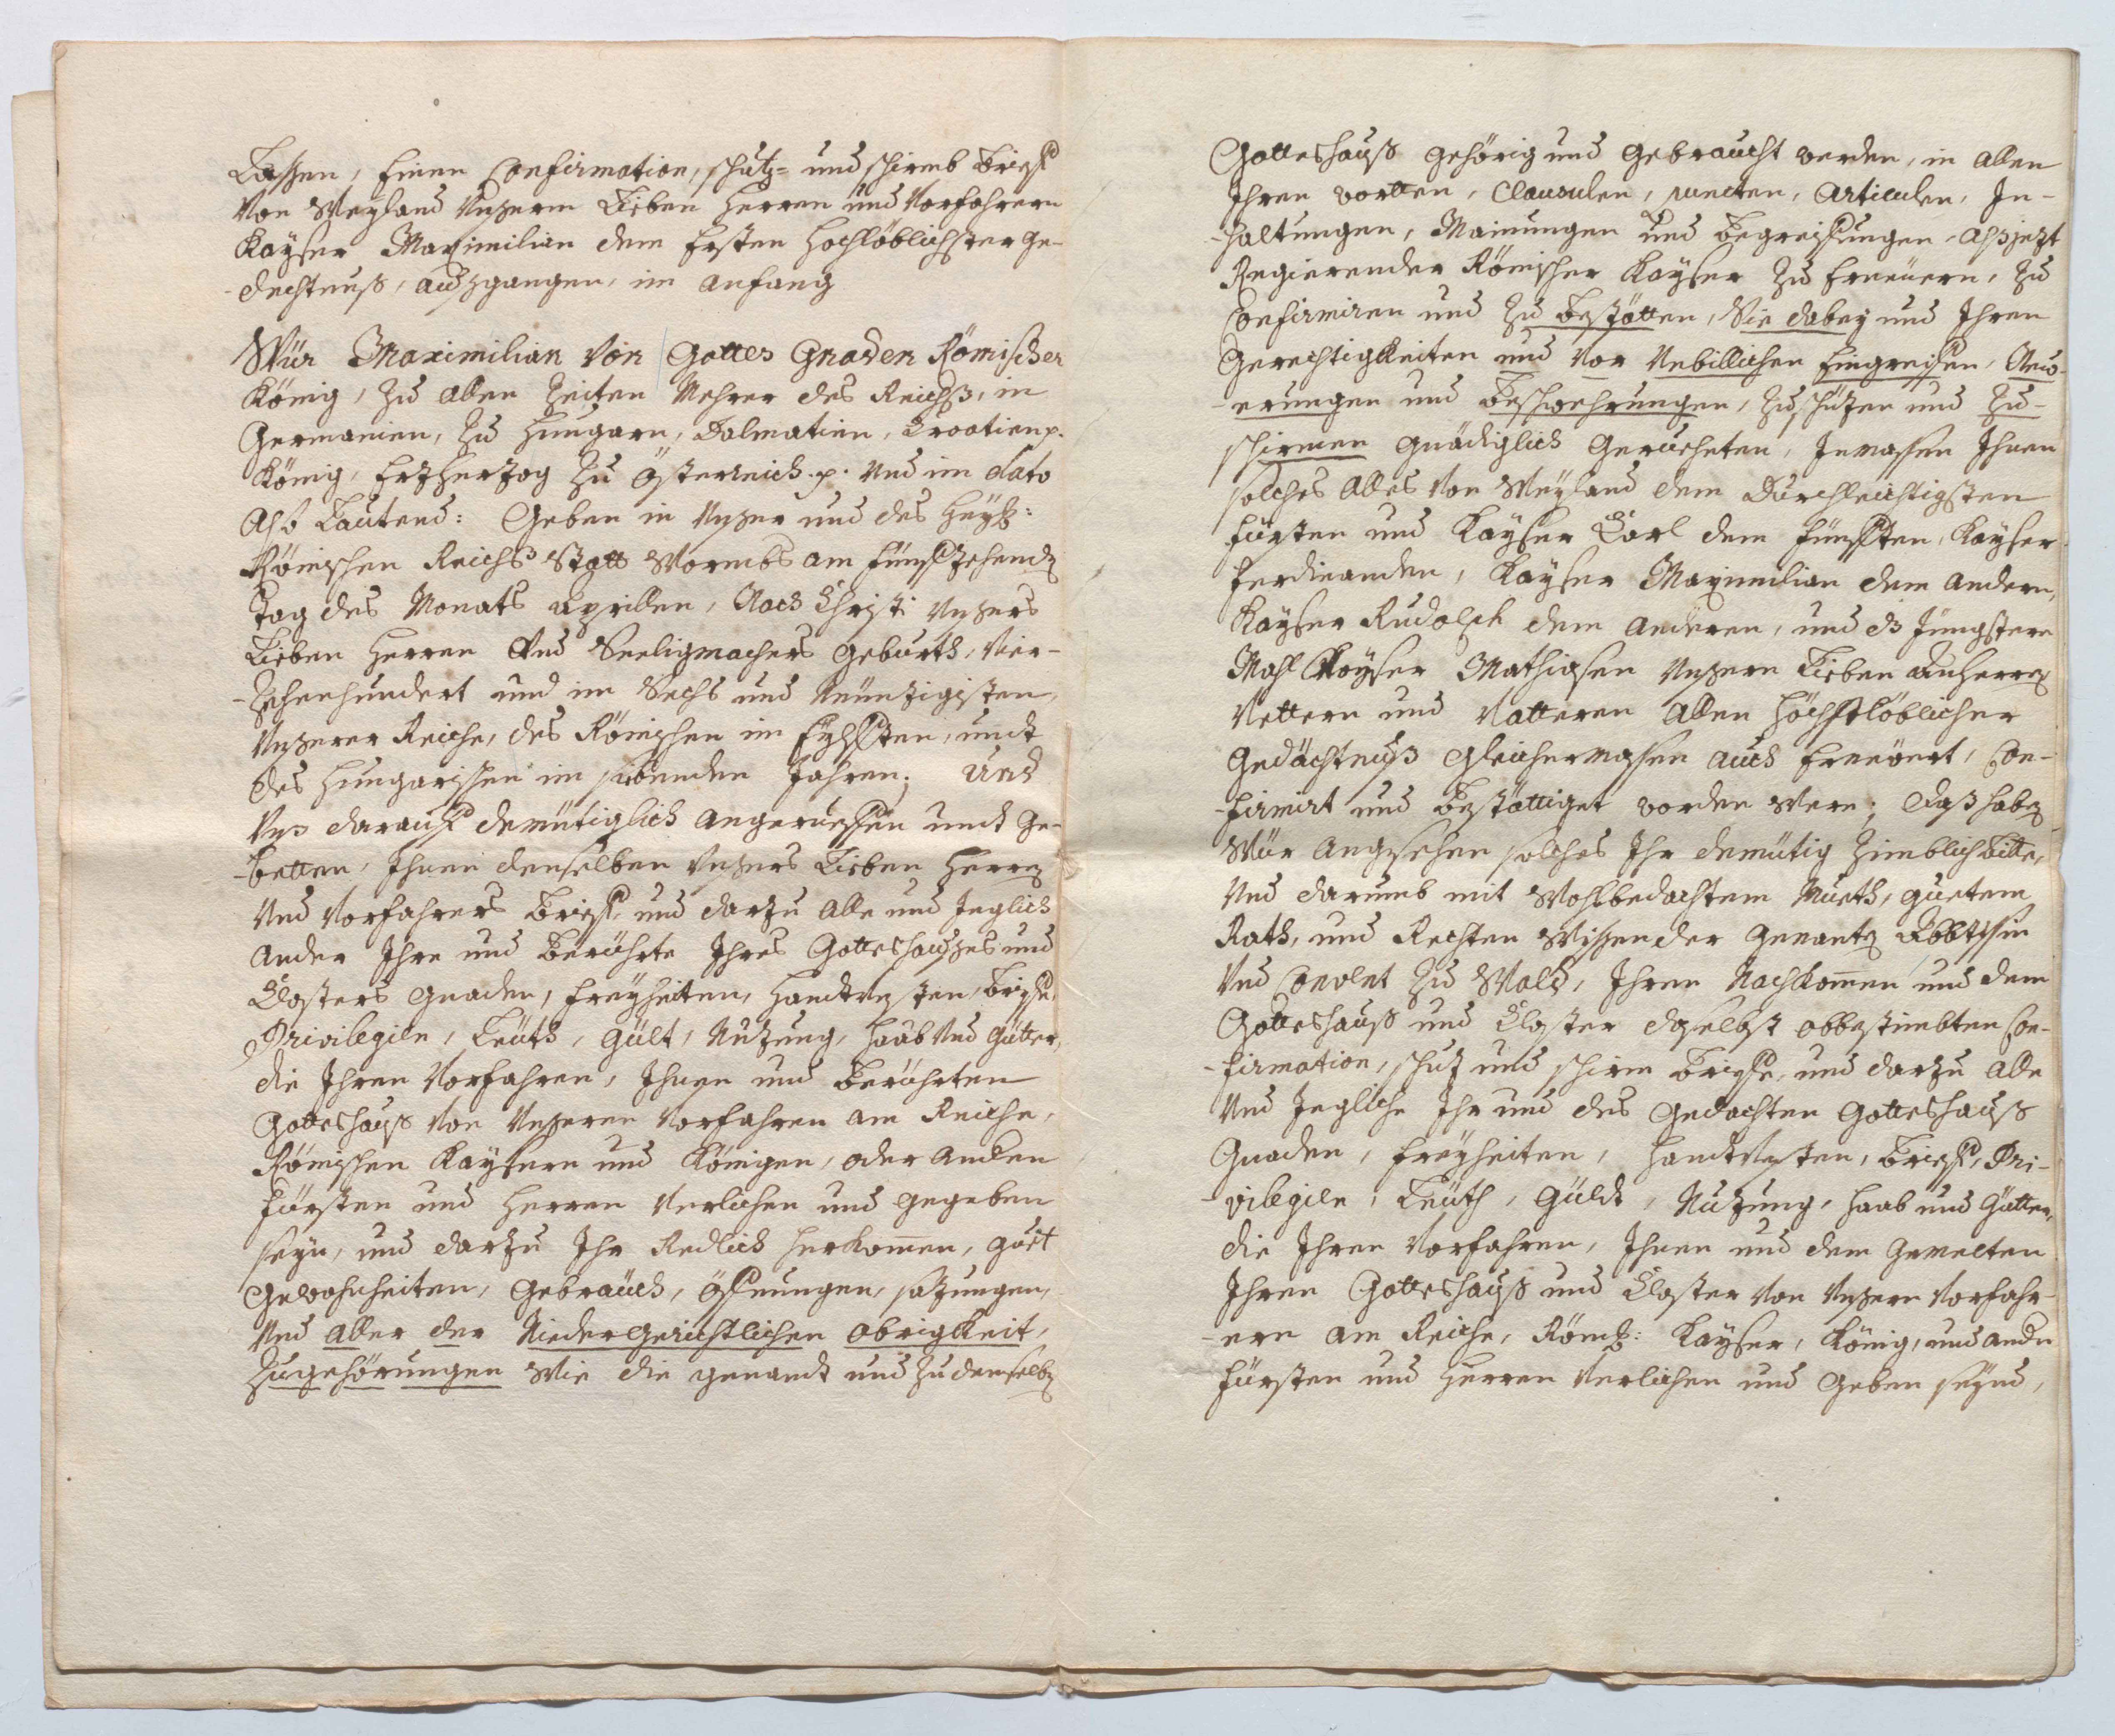 Lassen, Einen Confirmation, schutz- und schirmb Brieff
Von Weyland Unserm Lieben Herren und Vorfahrern
Kayser Maximilian dem Ersten Hochlöblichster Ge-
-dechtnuß, außgangen, im anfang
Wür Maximilian Von Gottes Gnaden Römischer
König, Zu allen Zeiten Mehrer des Reichß, in
Germanien, Zu Hungarn, Dalmatien, Croatien p.
König, Erzherzog Zu Österreich. p. Und im dato
Also Lautend: Geben in Unser und des Heyl:
Römischen Reichs Statt Wormbs am Fünffzehend
Tag des Monats Aprillen, Nach Christi Unsers
Lieben Herren Und Seeligmachers Geburth, Vier-
-Zehenhundert und im Sechs und Neünzigisten,
Unserer Reiche, des Römischen im Eylfften, undt
des Hungarischen im sibenden Jahren; Und
Uns darauff demütiglich angerueffen undt Ge-
-betten, Ihnen denselben Unsers Lieben Herren
Und Vorfahrers Brieff, und darzu alle und Jeglich
ander Ihre und Berührte Ihres Gotteshausses und
Closters Gnaden, Freyheiten, Handtvesten, Brieffe,
Privilegien, Leüth, Gült, Nutzung, Haab Und Gütter,
die Ihren Vorfahren, Ihnen und Berührten
Gotteshauß Von Unseren Vorfahren am Reiche,
Römischen Kaysern und Königen, oder anderen
Fürsten und Herren Verlichen und gegeben
seyn, und darzu Ihr Redlich Herkommen, guet
Gewohnheiten, Gebräuch, öffnungen, satzungen,
Und aller der Niedergerichtlichen Obrigkeit,
Zugehörungen Wie die genandt und Zu demselben
Gotteshauß gehörig und gebraucht werden, in allen
Ihren wortten, Clausulen, puncten, Articulen, In-
-haltungen, Mainungen und Begreiffungen, Alß jezt
Regierender Römischer Kayser Zu Erneüern, Zu
Confirmiren und Zu Bestötten, Sie dabey und Ihren
Gerechtigkeiten und Vor Unbillichen Eingreiffen, Neuw-
-erungen und Beschwehrungen, Zuschützen und Zu-
schirmen gnädiglich Gerucheten, Inmassen Ihnen
solches alles Von Weyland dem Durchleüchtigsten
Fürsten und Kayser Carl dem Fünfften, Kayser
Ferdinanden, Kayser Maximilian dem andern,
Kayser Rudolph dem anderen, und Jüngstern
Mahl Kayser Mathiasen Unsern Lieben Anherren
Vettern und Vatteren allen Höchstlöblicher
Gedächtnuß gleichermassen auch Erneüert, Con-
-firmirt und Bestöttiget worden Were; Daß haben
Wür angesehen solches Ihr demütig Zimblich Bitte,
Und darumb mit Wohlbedachtem Mueth, guetem
Rath, und Rechten Wissen der Genanten Äbbtissin
Und Convent Zu Wald, Ihren Nachkommen und dem
Gotteshauß und Closter daselbst obbestimbten Con-
-firmation, schuz und schirm Brieffe, und darzu alle
Und Jegliche Ihr und des Gedachten Gotteshauß
Gnaden, Freyheiten, Handtvesten, Brieff, Pri-
-vilegien, Leüth, Güldt, Nutzung, Haab und Gütter,
die Ihren Vorfahren, Ihnen und dem Gemelten
Ihren Gotteshauß und Closter Von Unsern Vorfahr-
-ern am Reiche, Römisch: Kayser, König, und andere
Fürsten und Herren Verlichen und Geben seynd,